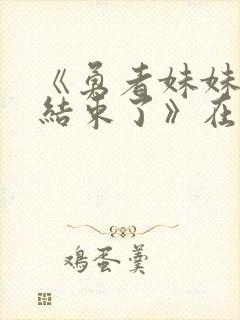 《勇者妹妹
結束了》在
鸡蛋羹